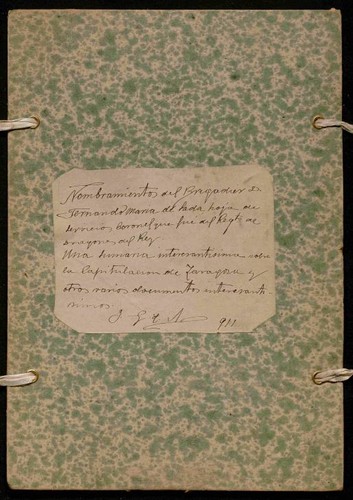 Nombramientos del Brigadier Dn
Fernando Maria de hoja de
servicio Coronel que fué del Regto de
Dragones del Rey
Una sumaria interesantisima sobre
la Capitulacion de Zaragoza y
otros varios documentos interesanti-
simos.
911